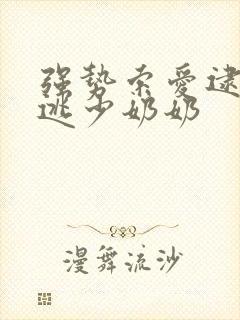 强势索爱逮
逃少奶奶
漫舞流沙